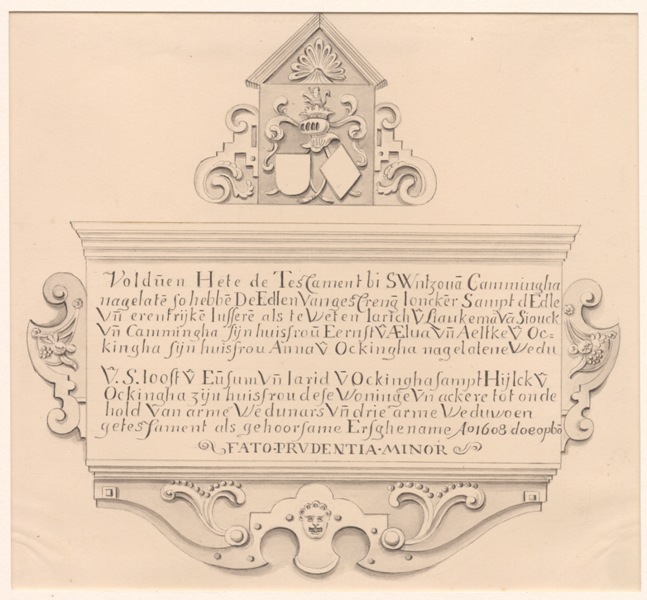 Voldūen Hete de Testament bi S Wntzouā Cammingha
nagelatē so hebbē De Edlen Vanges Trenḡ Ionckēr Sampt d Edle
Vn̄ erentrijkē Iufferē als te Weten Iarich V̄ Haukemā Vā Siouck
Vn̄ Cammingha sijn huisfroū Eernst V̄ Ælua Vn̄ Aeltke V̄ Oc=
kingha sijn huisfrou Anna V̄ Ockingha nagelatene Wedu
V̄. S. Ioost V̄ Eūsum Vn̄ Iarid V̄ Ockingha sampt Hijlck V̄
Ockingha zijn huisfrou dese Woninge Vn̄ ackere tot onde
hold Van arme Wedunars Vn̄ drie arme Weduwoen
getessament als gehoorsame Erfghename Ao 1608 doe opbō
FATO·PRVDENTIA·MINOR